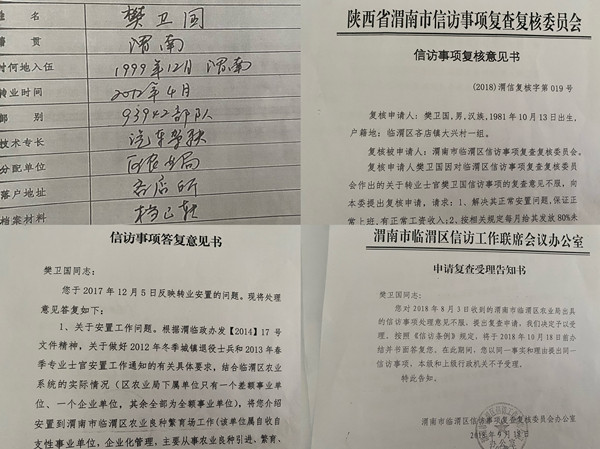 姓名 樊卫国
籍贯 渭南
时何地入伍 1999年12月 渭南
转业时间 2012年4月
部别 93942部队
技术专长 汽车驾驶
分配单位 区农业局
落户地址
档案材料
陕西省渭南市信访事项复查复核委员会
信访事项复核意见书
(2018)渭信复核字第019号
复核申请人：樊卫国,男,汉族,1981年10月13日出生,
户籍地：临渭区吝店镇大兴村一组。
复核被申请人：渭南市临渭区信访事项复查复核委员会。
复核申请人樊卫国因对临渭区信访事项复查复核委员
会作出的关于转业士官樊卫国信访事项的复查意见不服，向
本委提出复核申请，请求：1、解决其正常安置问题,保证正
常上班,有正常工资收入;2、按相关规定每月给其发放80%未
信访事项答复意见书
樊卫国同志：
您于2017年12月5日反映转业安置的问题。现将处理
意见答复如下：
1、关于安置工作问题。根据渭临政办发【2014】17号
文件精神，关于做好2012年冬季城镇退役士兵和2013年春
季专业士官安置工作通知的有关具体要求，结合临渭区农业
系统的实际情况（区农业局下属单位只有一个差额事业单
位、一个企业单位，其余全部为全额事业单位），将您介绍
安置到渭南市临渭区农业良种繁育场工作(该单位属自收自
支性事业单位，企业化管理，主要从事农业良种引进、繁育、
渭南市临渭区信访工作联席会议办公室
申请复查受理告知书
樊卫国同志：
您对2018年8月3日收到的渭南市临渭区农业局出具
的信访事项处理意见不服，提出复查申请，我们决定予以受
理。按照《信访条例》规定，将于2018年10月18日前办
结并书面答复您。在此期间，您以同一事实和理由提出同一
信访事项，本级和上级行政机关不予受理。
特此告知。
渭南市临渭区信访事项复查复核委员会办公室
2018年9月18日
办公室